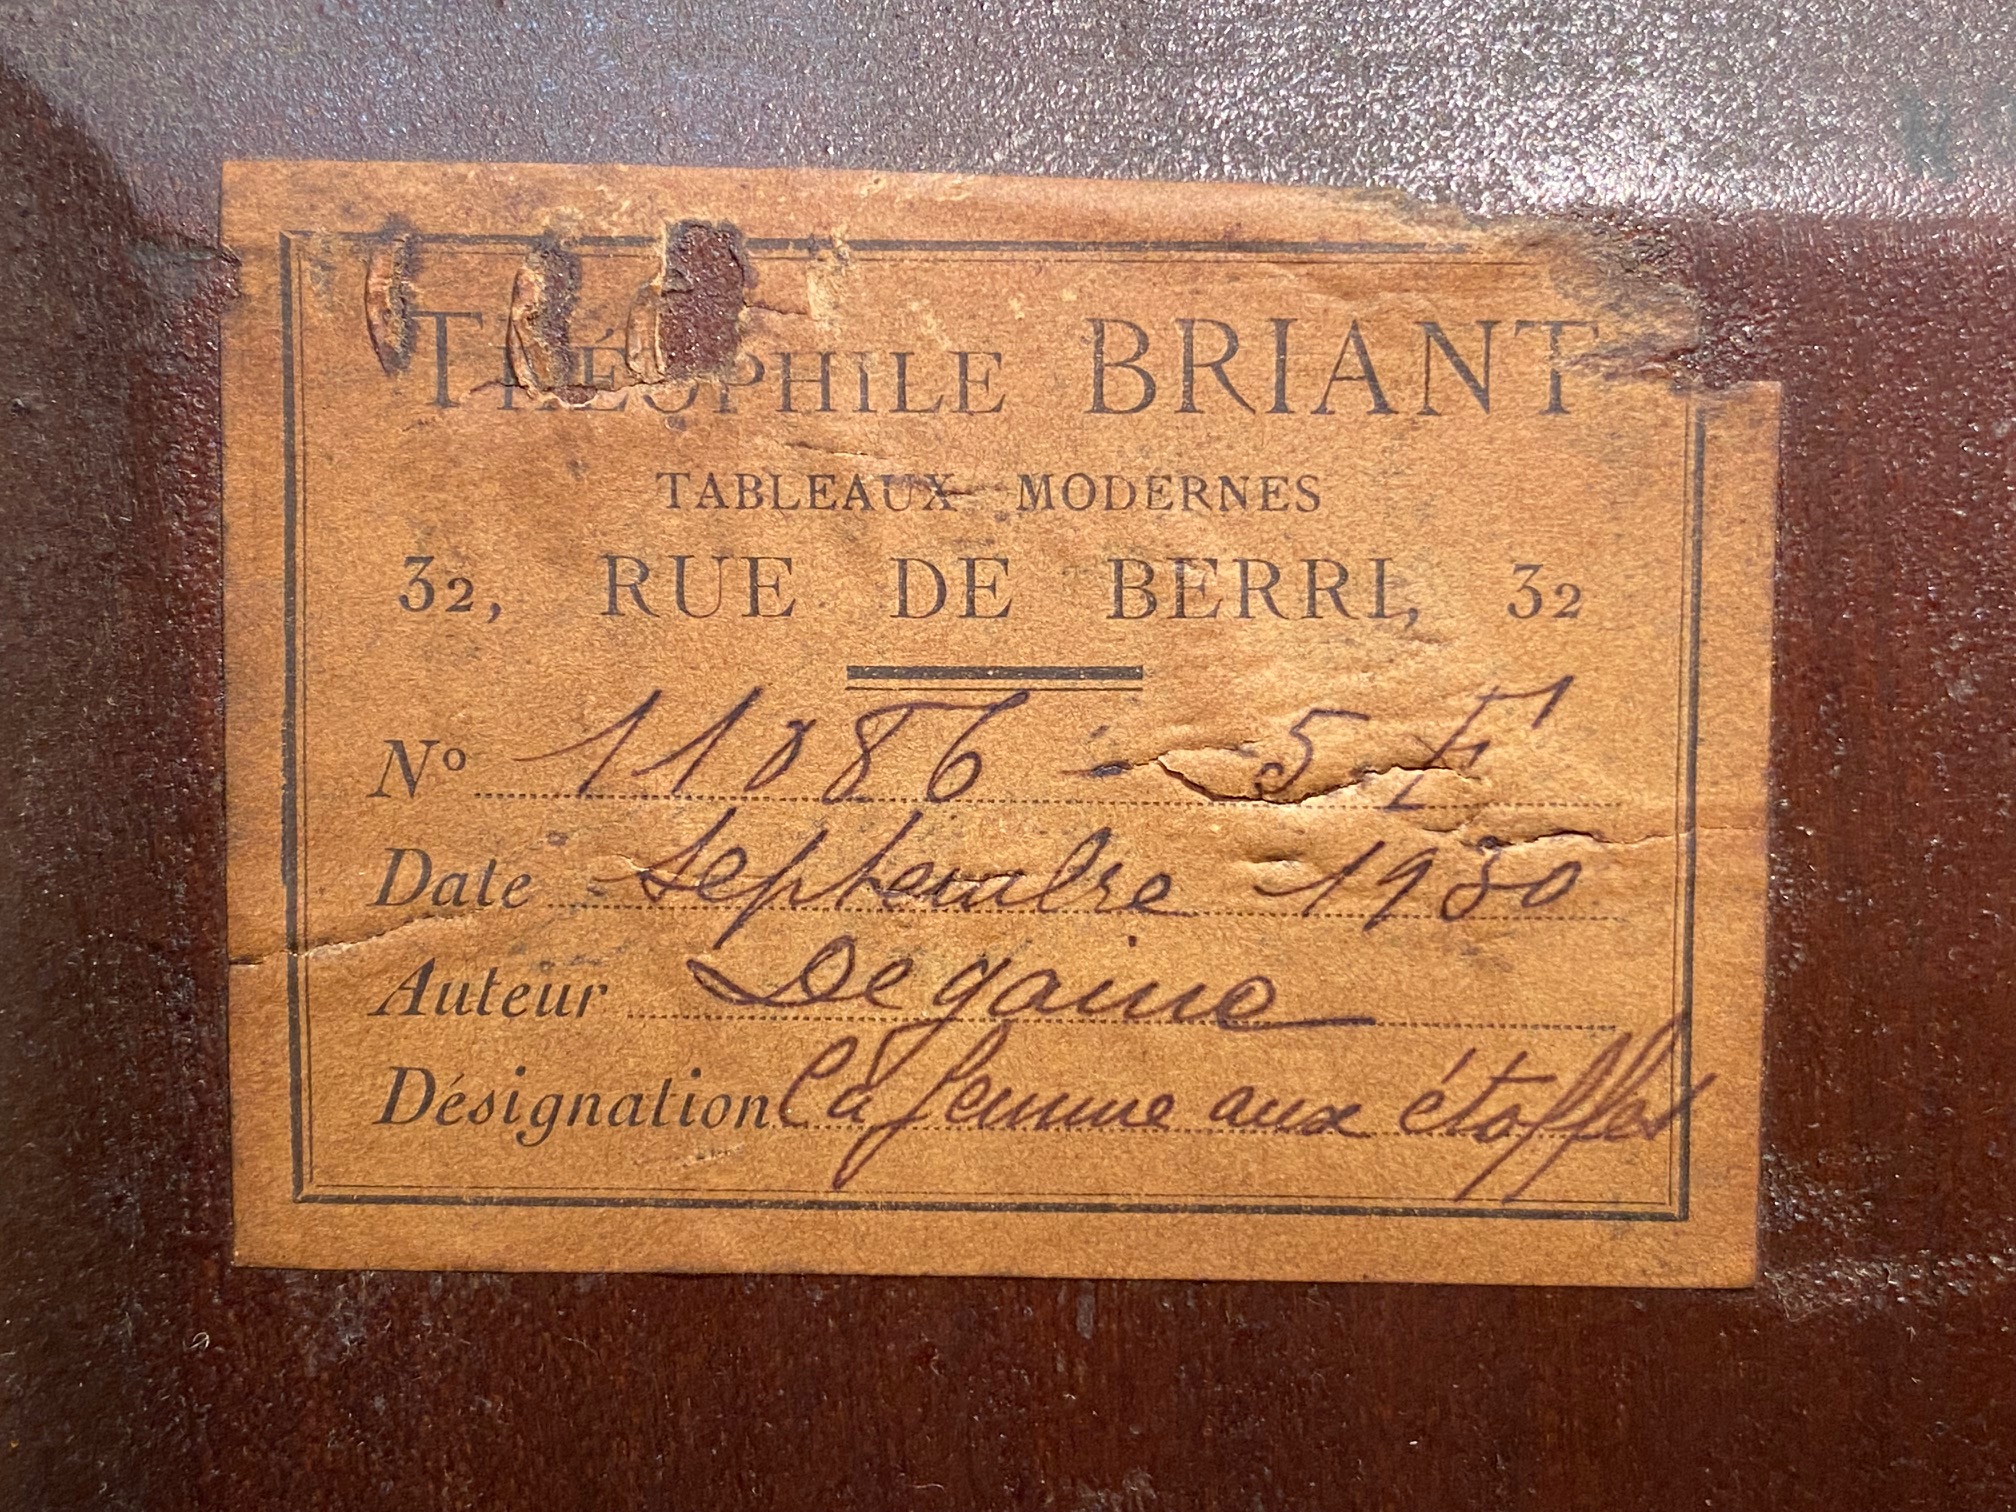 THÉOPHILE BRIANT
TABLEAUX MODERNES
32, RUE DE BERRI, 32
Nº 11086 - 5 F
Date Septembre 1930
Auteur Degaine
Désignation La femme aux étoffes